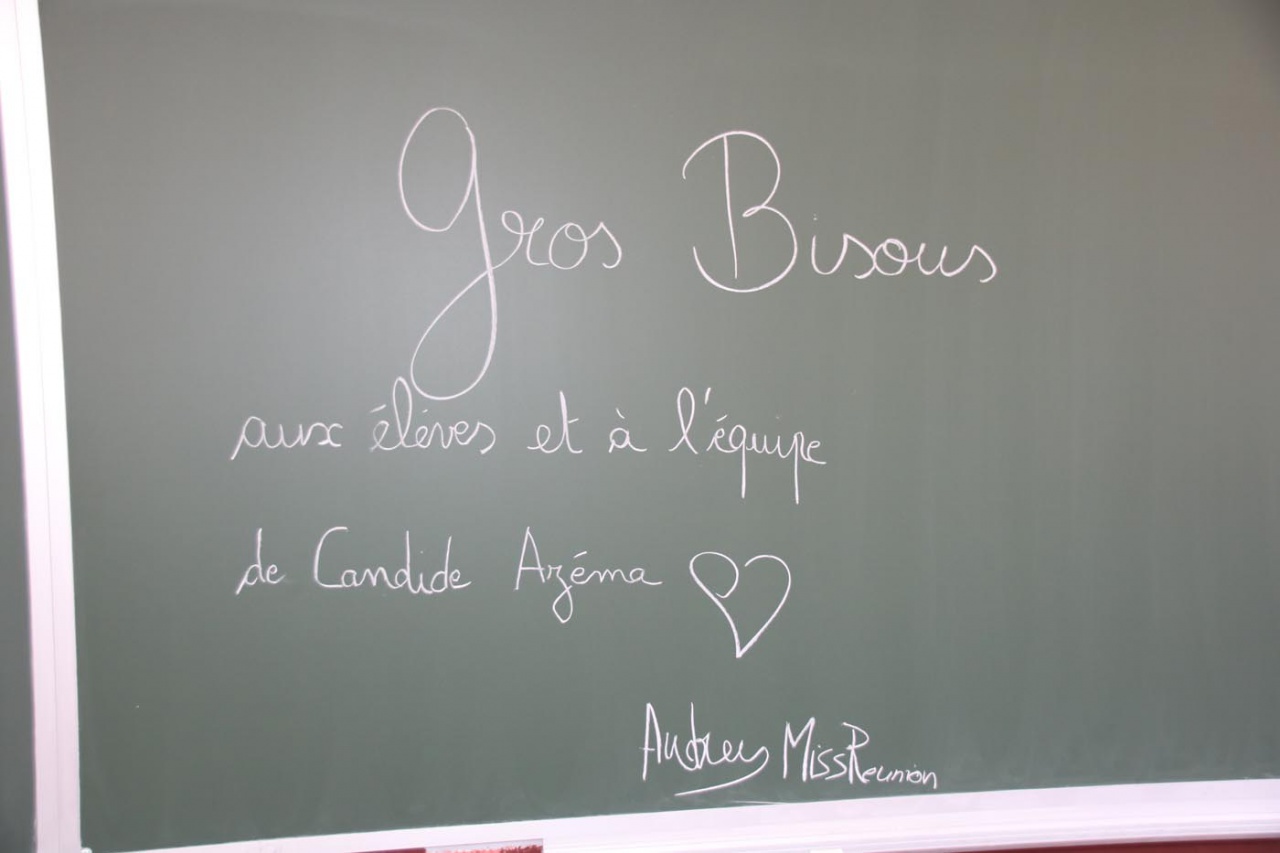 Gros Bisous
aux élèves et à l'équipe
de Candide Azéma
Audrey Miss Reunion